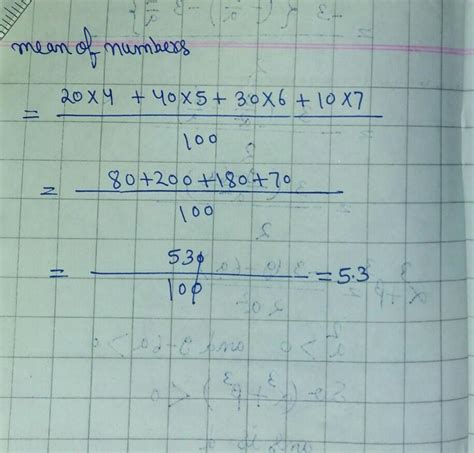 mean of numbers
= 20×4 + 40×5 + 30×6 + 10×7
100
= 80+200+180+70
100
= 530
100
= 5.3